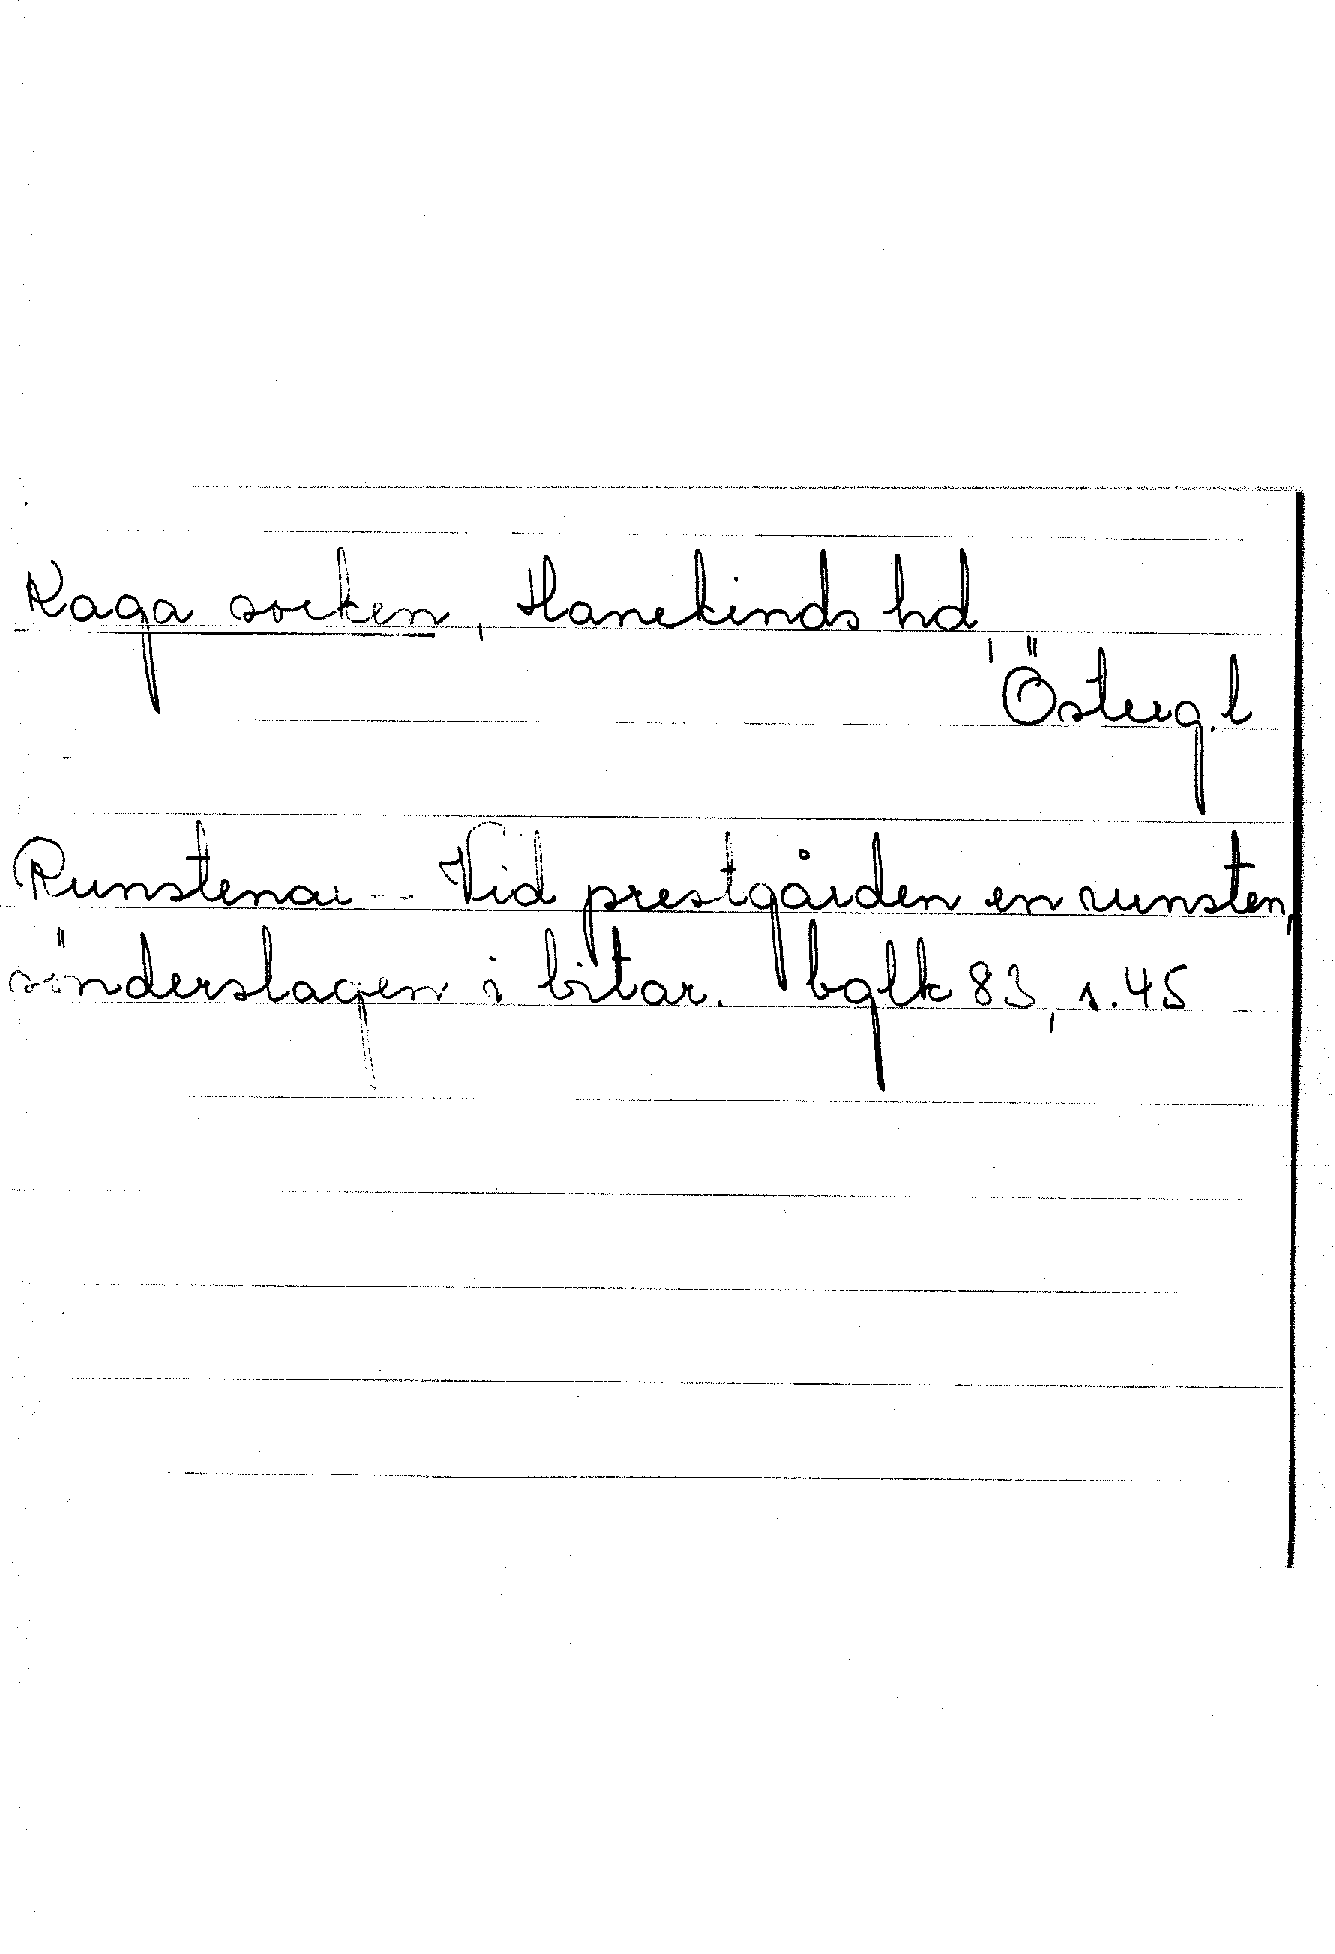 Kaga socken, Hanekinds hd,
Österg.l
Runstenar -- Vid prestgården en runsten,
sönderslagen i bitar. bglk 83, s. 45